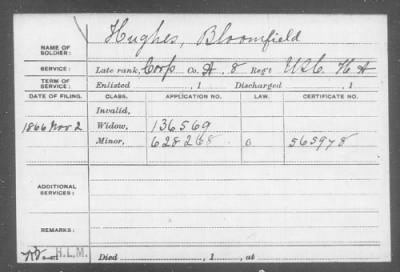 NAME OF SOLDIER: Hughes, Bloomfield
SERVICE: Late rank, Corp Co. A, 8 Reg't U.S.C. H A
TERM OF SERVICE: Enlisted , 1 Discharged , 1
DATE OF FILING. CLASS. APPLICATION NO. LAW. CERTIFICATE NO.
Invalid,
1866 Nov 2 Widow, 136569
Minor, 628268 565978
ADDITIONAL SERVICES:
REMARKS:
H.L.M. Died , 1 , at